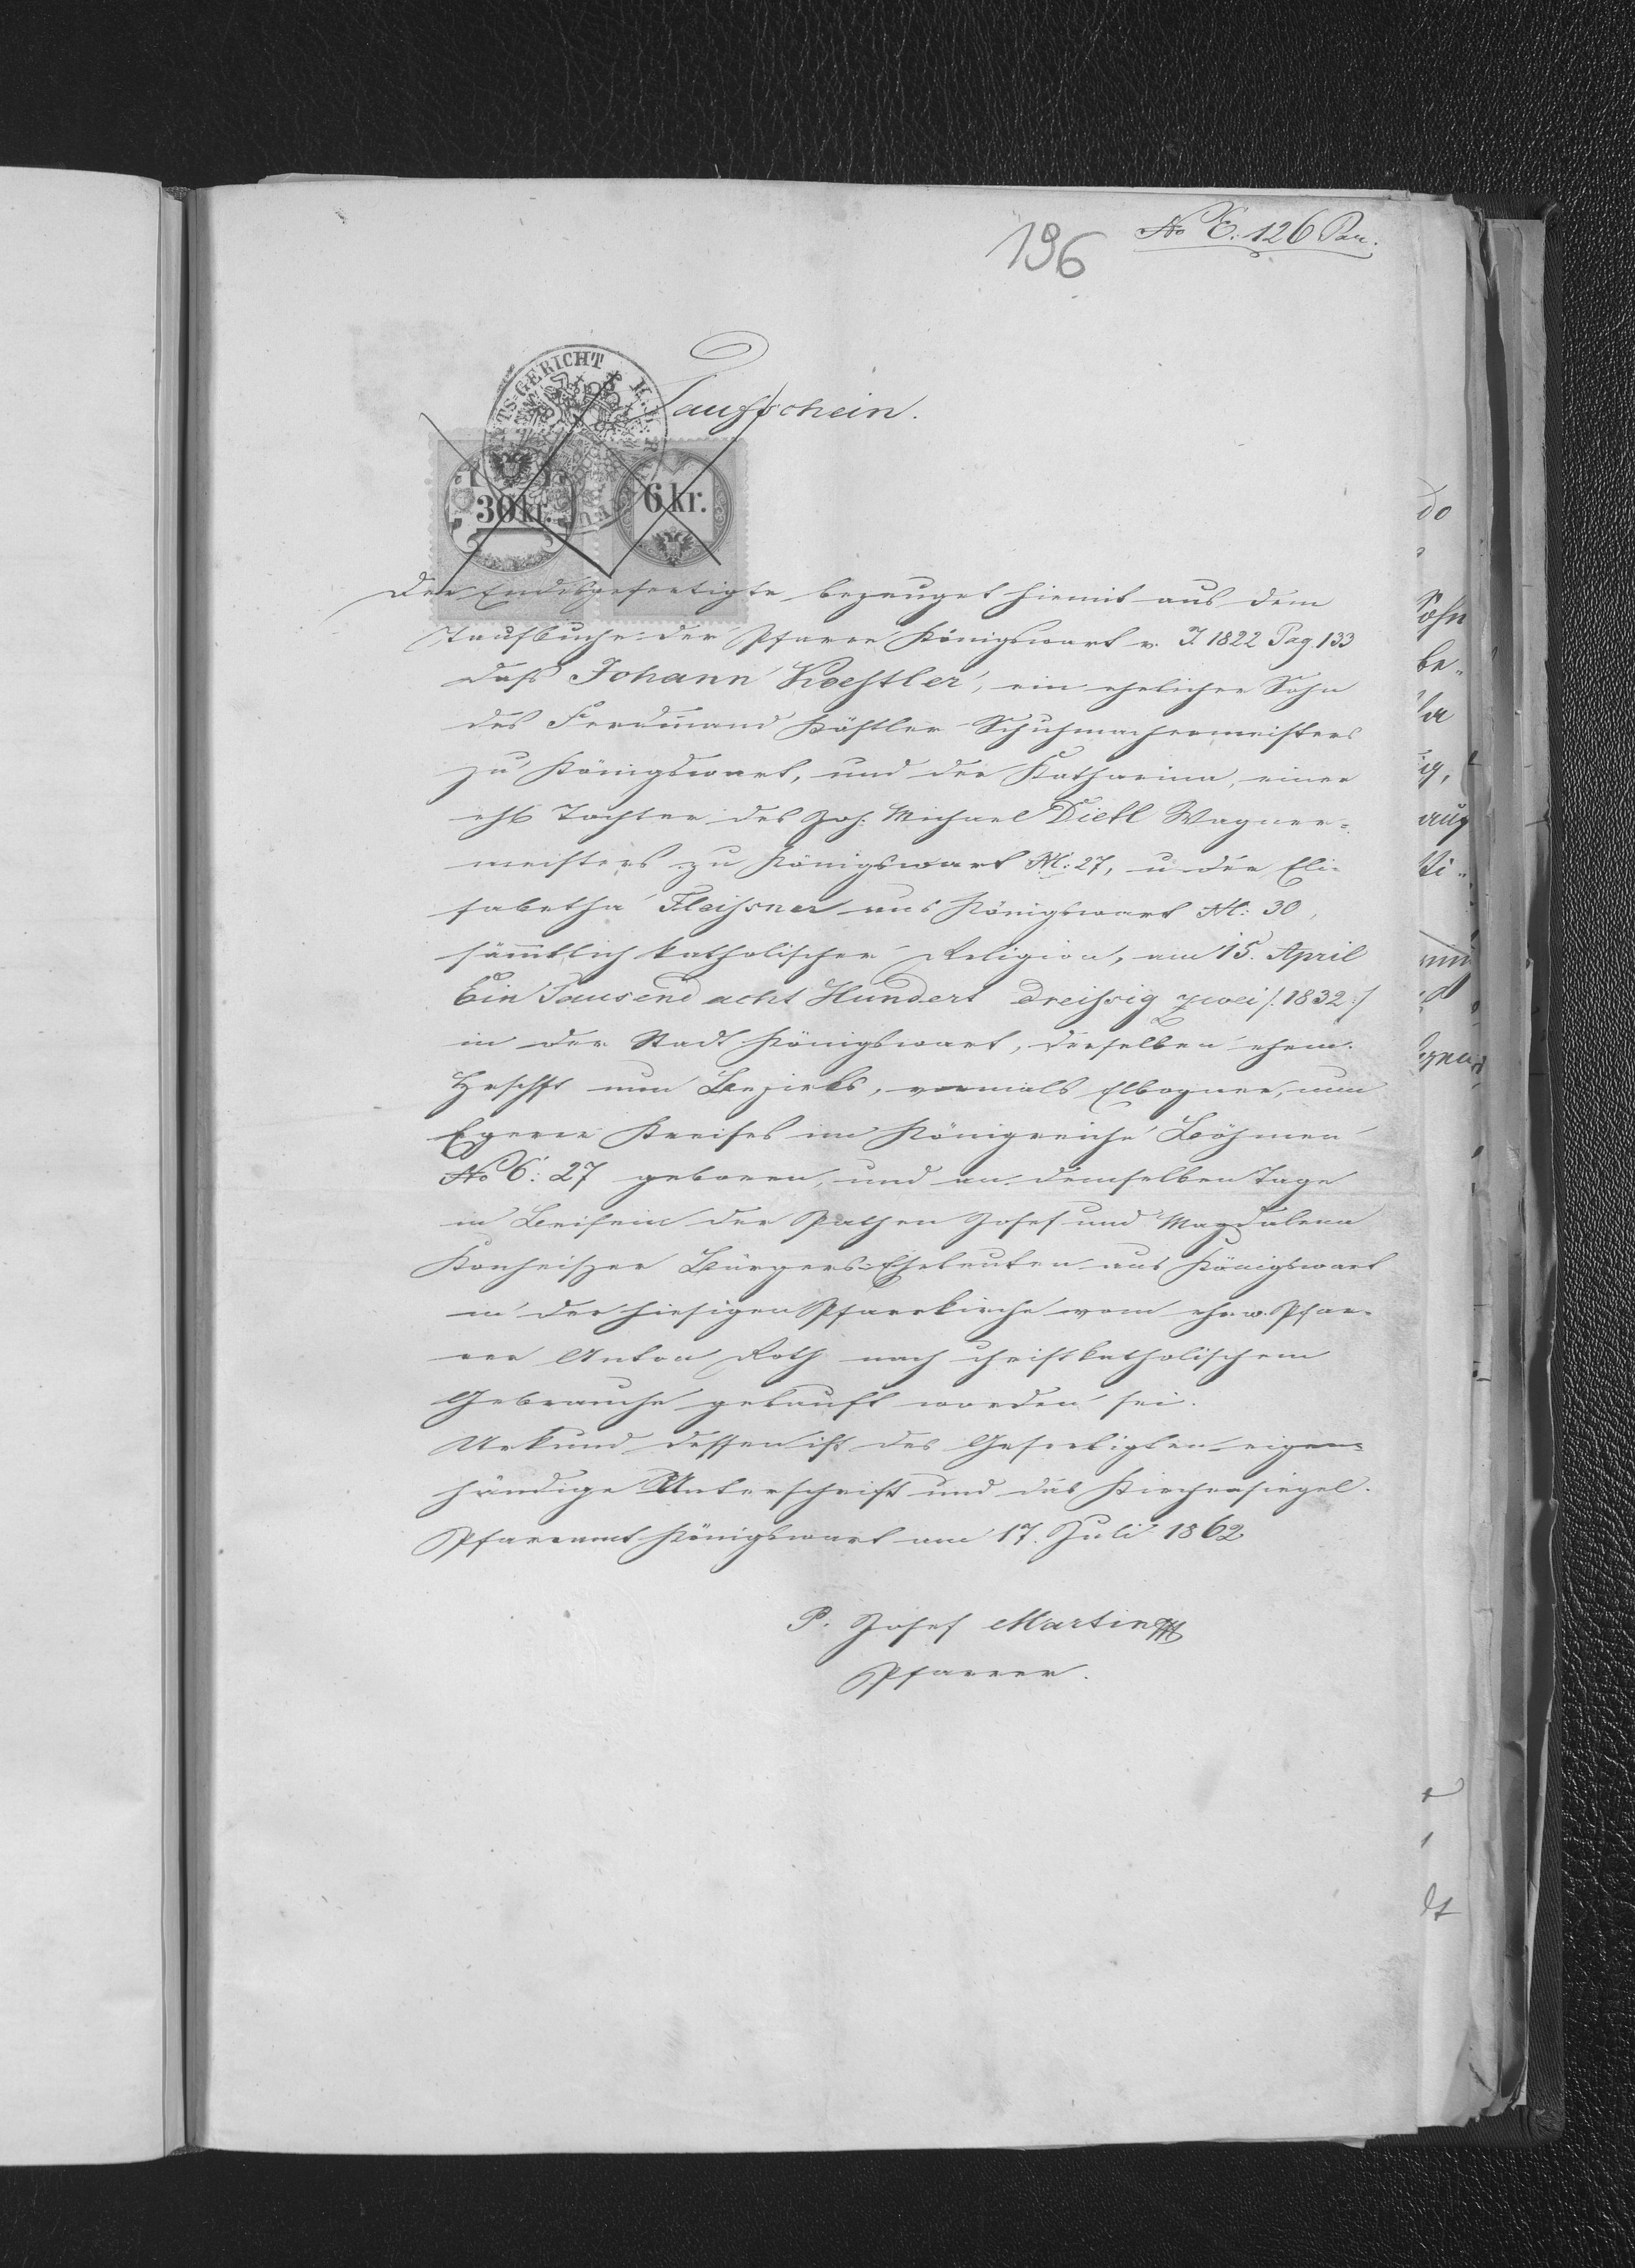 196
No E. 126 Par.
Taufschein.
30 kr.
6 kr.
Der Endesgefertigte bezeuget hiemit aus dem
Taufbuche der Pfarre Königswart v. J. 1822 Pag. 133
daß Johann Koestler, ein ehelicher Sohn
des Ferdinand Köstler Schuhmachermeisters
zu Königswart, und der Katharina, einer
ehl Tochter des Joh. Michael Dietl Wagner=
meisters zu Königswart N: 27, u der Eli=
sabetha Fleissner aus Königswart N: 30,
sämtlich katholischer Religion, am 15. April
Ein Tausend acht Hundert Dreissig zwei /: 1832 :/
in der Stadt Königswart, derselben ehem.
Hrschft nun Bezirks, vormals Elbogner, nun
Egerer Kreises im Königreiche Böhmen
No C: 27 geboren, und an demselben Tage
in Beisein der Pathen Josef und Magdalena
Bürgers-Eheleuten aus Königswart
in der hiesigen Pfarrkirche vom ehrw. Pfar=
rer Anton Roth nach christkatholischem
Gebrauche getauft worden sei.
Urkund dessen ist des Gefertigten eigen=
händige Unterschrift und das Kirchensiegel.
Pfarramt Königswart am 17. Juli 1862
P. Josef Martin
Pfarrer.